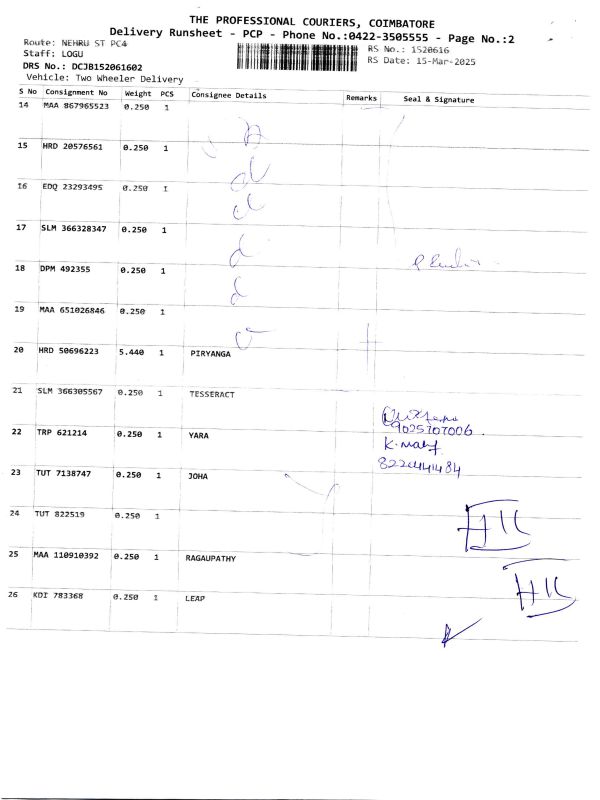 THE PROFESSIONAL COURIERS, COIMBATORE
Delivery Runsheet - PCP - Phone No.:0422-3505555 - Page No.:2
Route: NEHRU ST PC4
RS No.: 1520616
Staff: LOGU
RS Date: 15-Mar-2025
DRS No.: DCJB152061602
Vehicle: Two Wheeler Delivery
S No Consignment No Weight PCS Consignee Details Remarks Seal & Signature
14 MAA 867965523 0.250 1
15 HRD 20576561 0.250 1
16 EDQ 23293495 0.250 1
17 SLM 366328347 0.250 1
18 DPM 492355 0.250 1
19 MAA 651026846 0.250 1
20 HRD 50696223 5.440 1 PIRYANGA
21 SLM 366305567 0.250 1 TESSERACT
22 TRP 621214 0.250 1 YARA
23 TUT 7138747 0.250 1 JOHA
24 TUT 822519 0.250 1
25 MAA 110910392 0.250 1 RAGAUPATHY
26 KDI 783368 0.250 1 LEAP